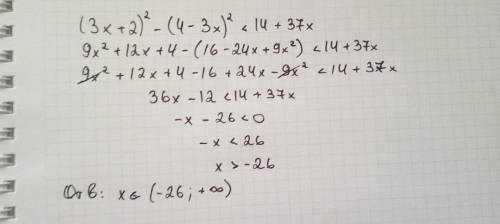 (3x+2)² - (4-3x)² < 14 + 37x
9x² + 12x + 4 - (16 - 24x + 9x²) < 14 + 37x
9x² + 12x + 4 - 16 + 24x - 9x² < 14 + 37x
36x - 12 < 14 + 37x
-x - 26 < 0
-x < 26
x > -26
Отв: x ∈ (-26; +∞)